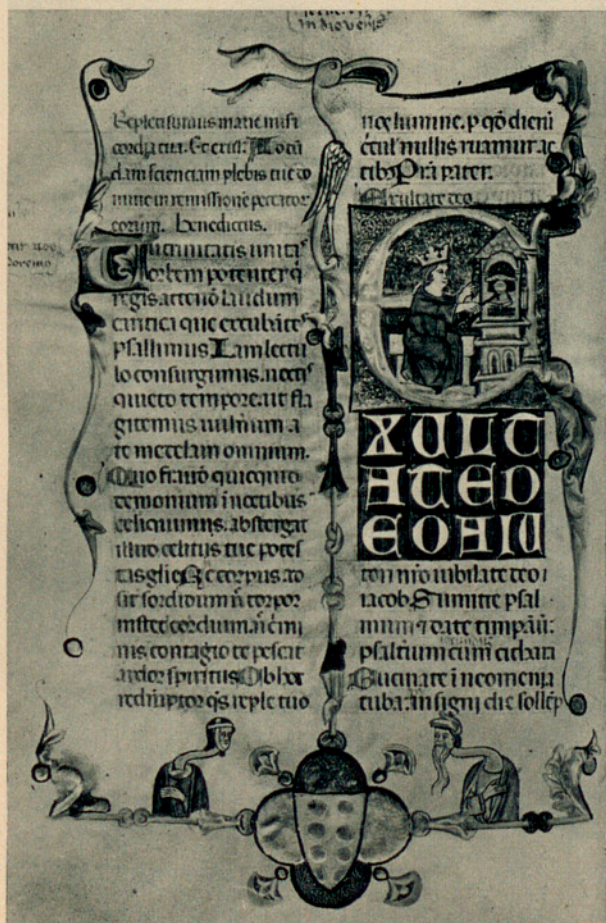 in diovenis
Repleti sumus mane misi
cordia tua. Et erit. Ad
dam scienciam plebis tue
in remissione peccator
eorum. Benedictus.
Tu trinitatis unitas
orbem potenter q
regis attende laudum
cantici que excubātes
psallimus Nam lectu
lo consurgimus noctis
quieto tempore. ut fla
gitemus vulnerum
te medelam omnium.
Quo fraude quicquid
demonum in noctibus
deliquimus. abstergat
illud celitus tue potes
tas glie Ne corpus
sit sordidum n torpor
instet cordium. n crimi
nis contagio tepescat
ardor spiritus Ob hoc
redemptor qs reple tuo
nos lumine. p qd dierū
nullis ruamur ac
tibus Prā pater.
Exultate deo
E
XULT
ATE D
EO AIU
tori nro iubilate deo
iacob Sumite psal
mum & date timpanū:
psalterium cum cithara
Bucinate in neomenia
tuba: in insigni die sollēp